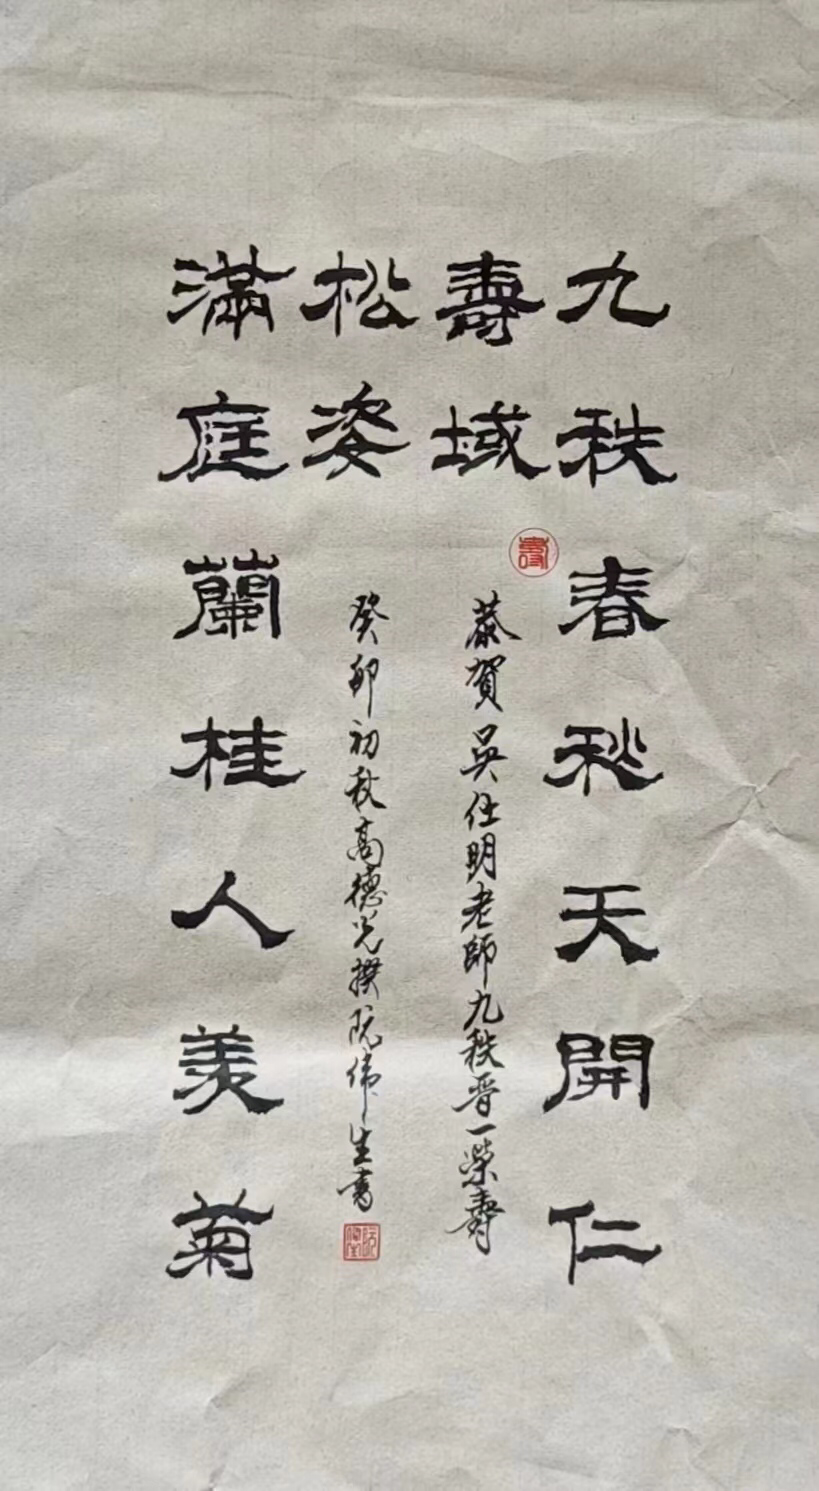 九秩春秋天開仁
壽域
恭賀吳任明老師九秩晋一榮壽
滿庭蘭桂人羡菊
松姿
癸卯初秋高德光撰阮偉生書
壽